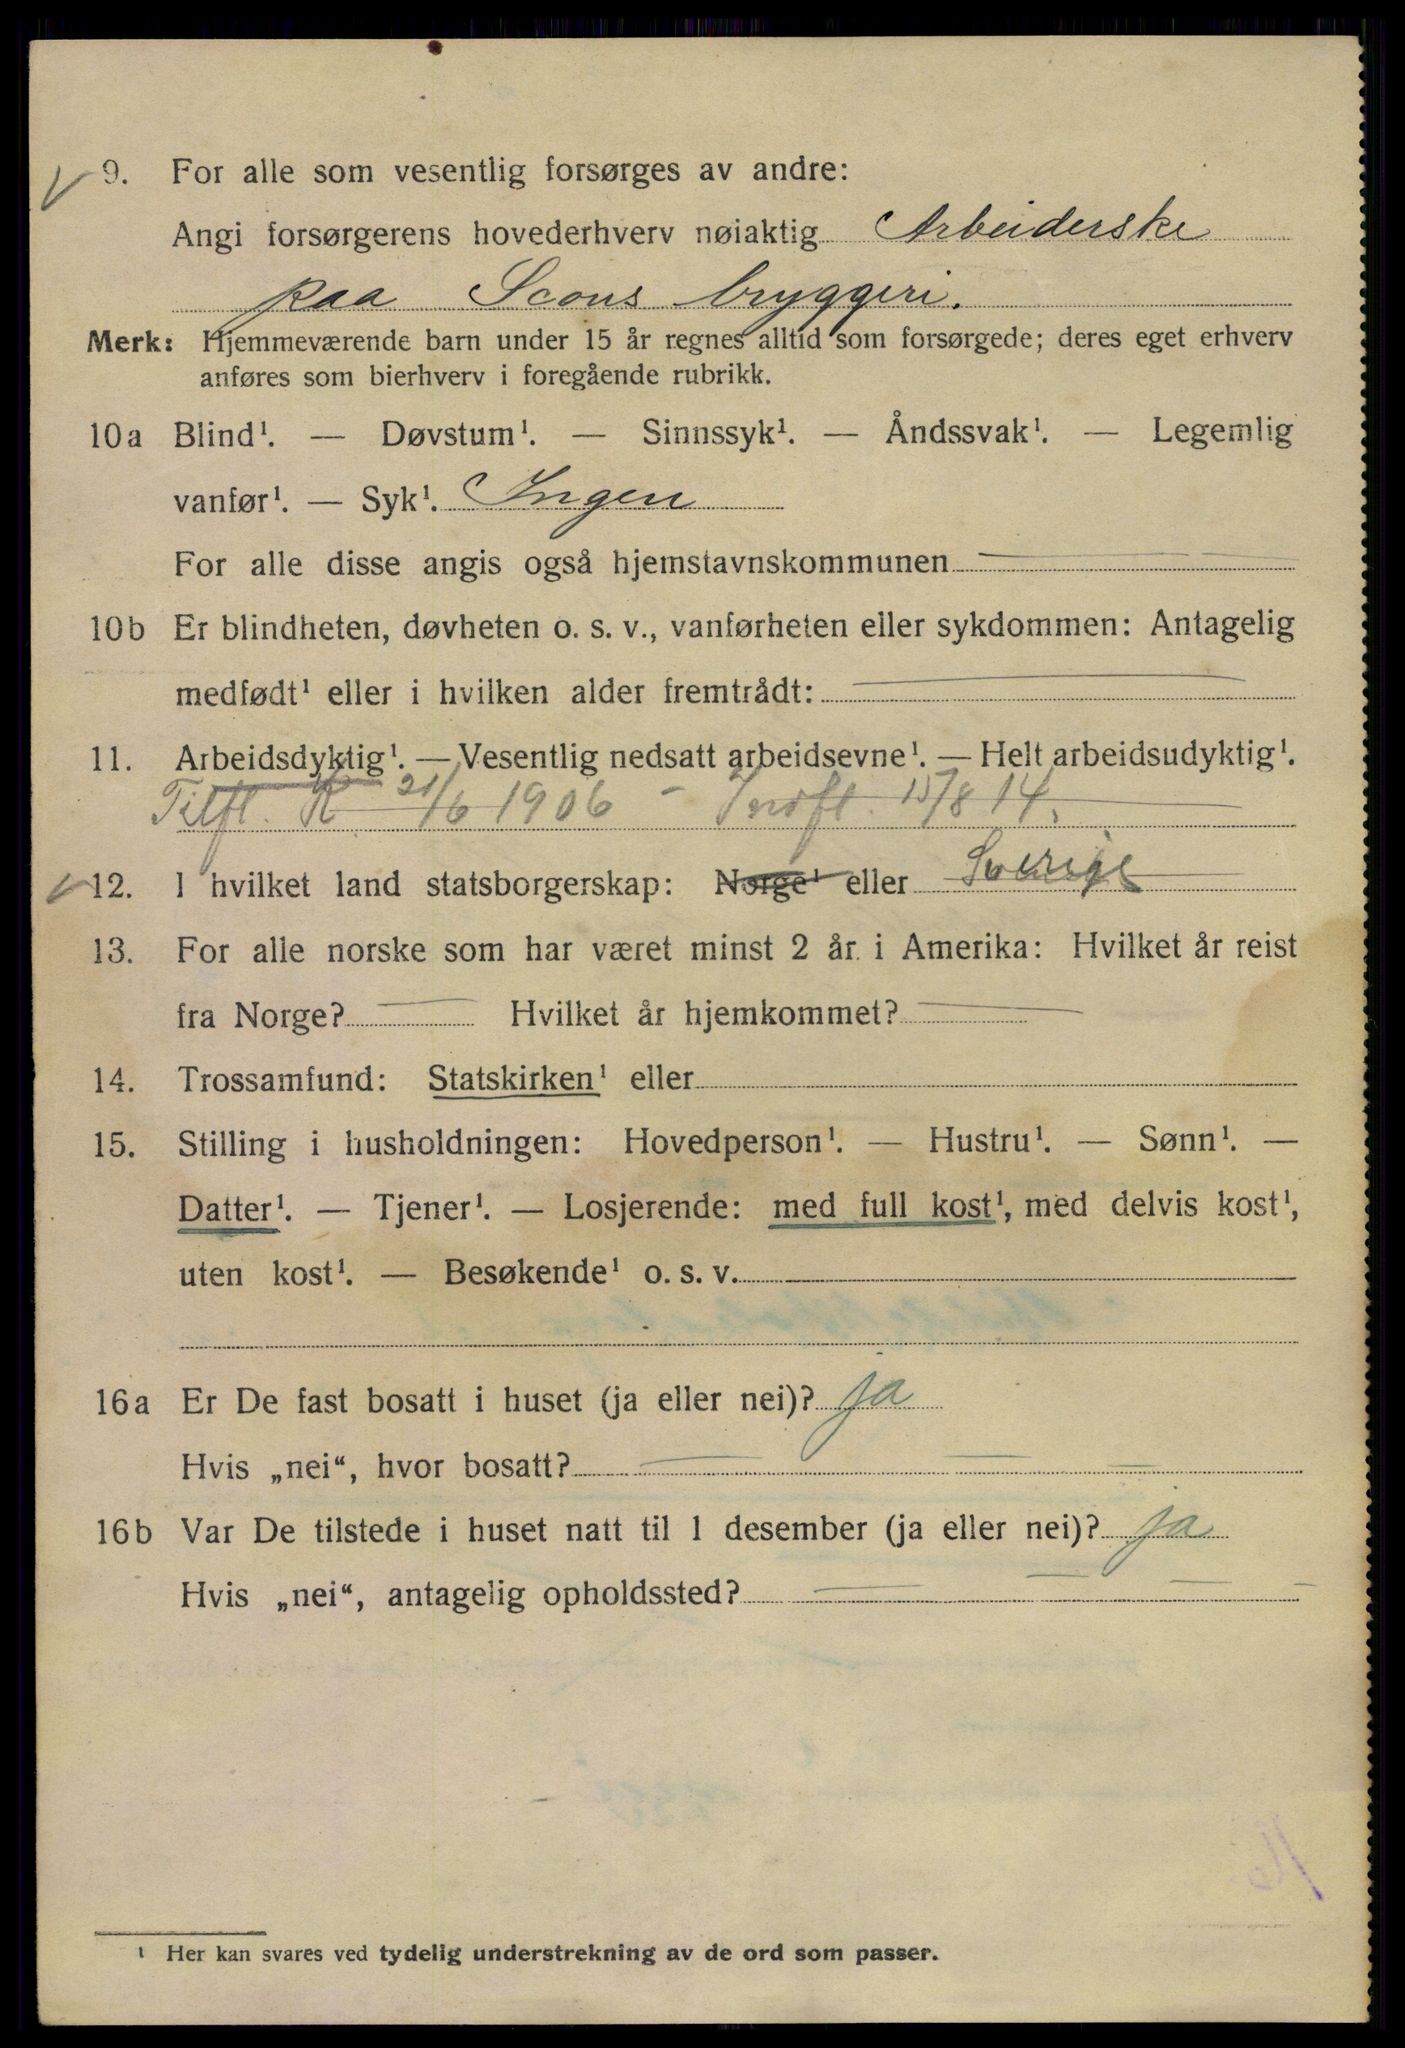 9. For alle som vesentlig forsørges av andre:
Angi forsørgerens hovederhverv nøiaktig Arbeiderske
paa Scous bryggeri.
Merk: Hjemmeværende barn under 15 år regnes alltid som forsørgede; deres eget erhverv
anføres som bierhverv i foregående rubrikk.
10a Blind¹. — Døvstum¹. — Sinnssyk¹. — Åndssvak¹. — Legemlig
vanfør¹. — Syk¹. Ingen
For alle disse angis også hjemstavnskommunen
10b Er blindheten, døvheten o. s. v., vanførheten eller sykdommen: Antagelig
medfødt¹ eller i hvilken alder fremtrådt:
11. Arbeidsdyktig¹. — Vesentlig nedsatt arbeidsevne¹. — Helt arbeidsudyktig¹.
Tilfl. K. 21/6 1906 - Indfl. 15/8 14.
12. I hvilket land statsborgerskap: Norge¹ eller Sverige
13. For alle norske som har været minst 2 år i Amerika: Hvilket år reist
fra Norge? Hvilket år hjemkommet?
14. Trossamfund: Statskirken¹ eller
15. Stilling i husholdningen: Hovedperson¹. — Hustru¹. — Sønn¹. —
Datter¹. — Tjener¹. — Losjerende: med full kost¹, med delvis kost¹,
uten kost¹. — Besøkende¹ o. s. v.
16a Er De fast bosatt i huset (ja eller nei)? ja
Hvis „nei“, hvor bosatt?
16b Var De tilstede i huset natt til 1 desember (ja eller nei)? ja
Hvis „nei“, antagelig opholdssted?
¹ Her kan svares ved tydelig understrekning av de ord som passer.